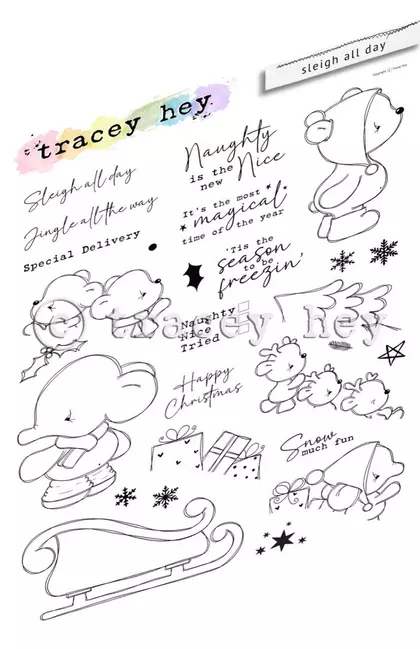 sleigh all day
tracey hey
Naughty
is the
new Nice
Sleigh all day
Jingle all the way
Special Delivery
It's the most
magical
time of the year
'Tis the
season
to be
freezin'
© tracey hey
Naughty
Nice
Tried
Happy
Christmas
Snow
much fun
© tracey hey